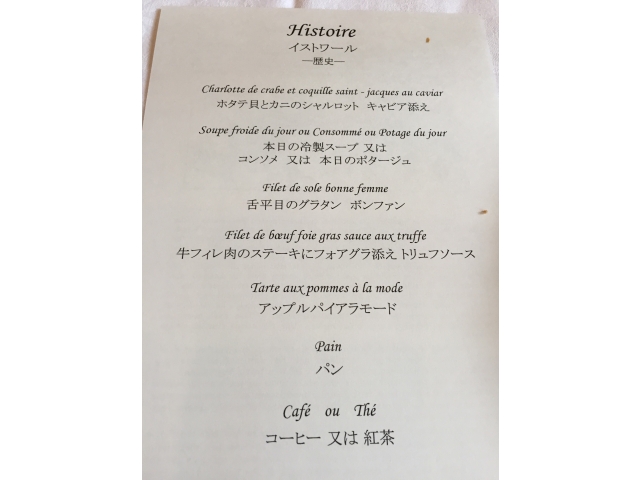 Histoire
イストワール
―歴史―
Charlotte de crabe et coquille saint - jacques au caviar
ホタテ貝とカニのシャルロット キャビア添え
Soupe froide du jour ou Consommé ou Potage du jour
本日の冷製スープ 又は
コンソメ 又は 本日のポタージュ
Filet de sole bonne femme
舌平目のグラタン ボンファン
Filet de bœuf foie gras sauce aux truffe
牛フィレ肉のステーキにフォアグラ添え トリュフソース
Tarte aux pommes à la mode
アップルパイアラモード
Pain
パン
Café ou Thé
コーヒー 又は 紅茶